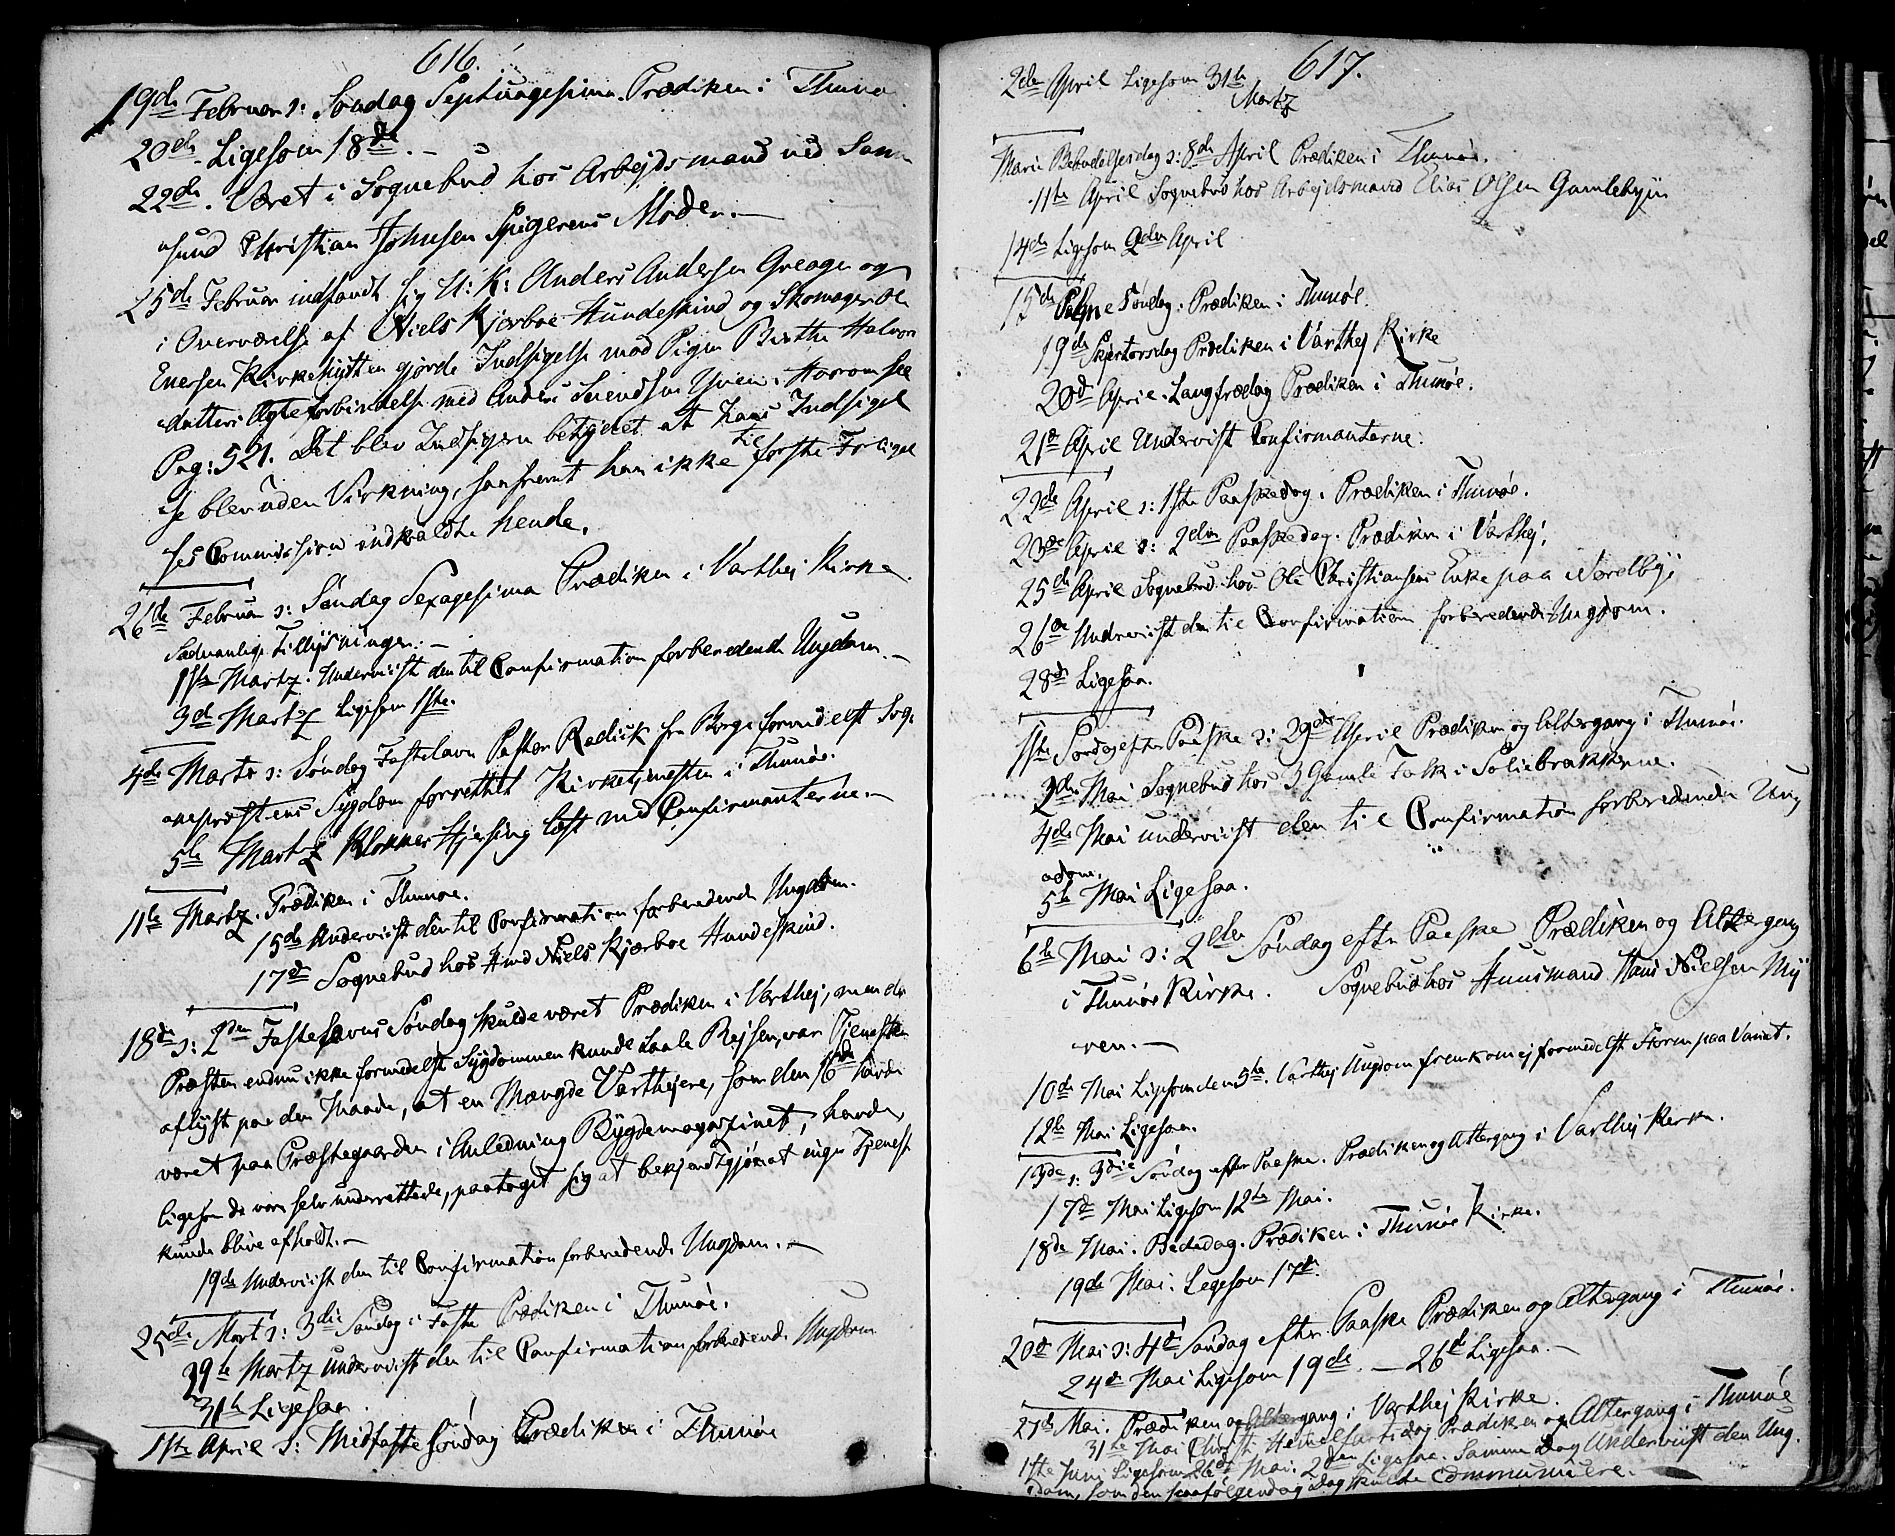 616.
19de Februar ɔ: Søndag Septuagesima. Prædiken i Thunø
20de Ligesom 18de. —
22de. Været i Sognebud hos Arbejdsmand ved Sann
esund Christian Johnsen Spigerens Moder. —
25de Februar indfandt sig U: K: Anders Andersen Greager og
i Overværelse af Niels Kjerboe Hundeskind og Skomager Ole
Enersen Kirkehytten gjorde Indsigelse mod Pigen Birthe Halvors
datters Ægteforbindelse med Anders Svendsen
Pag: 521. Det blev Indsigeren betydet at hans Indsigel
se blev uden Virkning, saafremt han ikke til første Forligel
ses Commission indkaldte hende.
26de Februar ɔ: Søndag Sexagesima Prædiken i Varthej Kirke.
Sædvanlige Tillysninger. —
1ste Martz. Underviist den til Confirmation forberedende Ungdom. —
3de Martz Ligesom 1ste.
4de Marts ɔ: Søndag Fastelavn Pastor Radick fra Borge formedelst Sog
nepræstens Sygdom forrettet Kirketjenesten i Thunøe.
5te Martz Klokker Hjersing læst med Confirmanterne. —
11te Martz. Prædiken i Thunøe.
15de Underviist den til Confirmation forberedende Ungdom.
17de Sognebud hos Hmd Niels Kjærboe Hundeskind.
18de ɔ: 2den Fastelavns Søndag skulde været Prædiken i Varthej, men da
Præsten endnu ikke formedelst Sygdommen kunde taale Rejsen, var Tjenesten
aflyst paa den Maade, at en Mængde Varthejere, som den 16de havde
været paa Præstegaarden i Anledning Bygdemagazinet, havde,
ligesom de vare selv underrettede, paataget sig at bekjendtgjøre at ingen Tjeneste
kunde blive afholdt. —
19de Underviist den til Confirmation forberedende Ungdom. —
25de Mart ɔ: 3die Søndag i Faste Prædiken i Thunøe.
29de Martz Underviist den til Confirmation forberedende Ungdom
31te Ligesaa.
1ste April ɔ: Midfaste Søndag Prædiken i Thunøe
617.
2den April Ligesom 31te
Martz
Mariæ Bebudelsesdag ɔ: 8de April Prædiken i Thunøe.
11te April Sognebud hos Arbejdsmand Elias Olsen Gamlebyen
14de Ligesom 2den April
15de Palme Søndag. Prædiken i Thunøe.
19de Skjertorsdag Prædiken i Varthej Kirke
20de April. Langfredag Prædiken i Thunøe.
21de April Underviist Confirmanterne.
22de April ɔ: 1ste Paaskedag. Prædiken i Thunøe.
23de April ɔ: 2den Paaskedag. Prædiken i Varthej.
25de April Sognebud hos Ole Christiansens Enke paa Nordbye;
26de Underviist den til Confirmation forberedende Ungdom.
28de Ligesaa.
1ste Søndag efter Paaske ɔ: 29de April Prædiken og Altergang i Thunøe.
2den Mai Sognebud hos 3 Gamle Folk i Soliebrakkerne.
4de Mai underviist den til Confirmation forberedende Ung
dom.
5te Mai Ligesaa.
6te Mai ɔ: 2den Søndag efter Paaske Prædiken og Altergang
i Thunøe Kirke. Sognebud hos Huusmand Hans Nielsen Myr
ren. —
10de Mai Ligesom den 5te. Varthej Ungdom fremkom ej formedelst Storm paa Vandet.
12te Mai Ligesaa.
13de ɔ: 3die Søndag efter Paaske. Prædiken og Altergang i Varthej Kirke.
17de Mai Ligesom 12te Mai.
18de Mai. Bededag. Prædiken i Thunøe Kirke.
19de Mai. Ligesom 17de.
20de Mai ɔ: 4de Søndag efter Paaske Prædiken og Altergang i Thunøe.
24de Mai Ligesom 19de. — 26de Ligesaa. —
27de Mai. Prædiken og Altergang i Varthej Kirke.
31te Mai Christi Himmelfartsdag Prædiken og Altergang i Thunøe
1ste Juni Ligesom 26de Mai. 2den Ligesaa. Samme Dag Underviist den Ung
dom, som den paafølgende Dag skulde communicere.